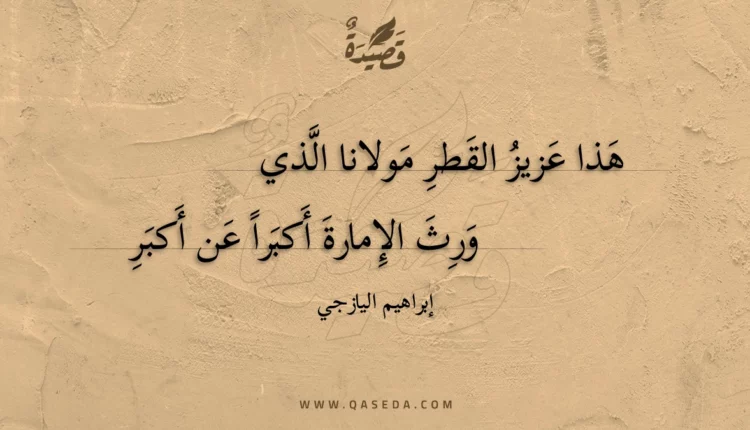 قَصِيْدَةٌ
هَذا عَزيزُ القَطرِ مَولانا الَّذي
وَرِثَ الإِمارةَ أَكبَراً عَن أَكبَرِ
إبراهيم اليازجي
WWW.QASEDA.COM